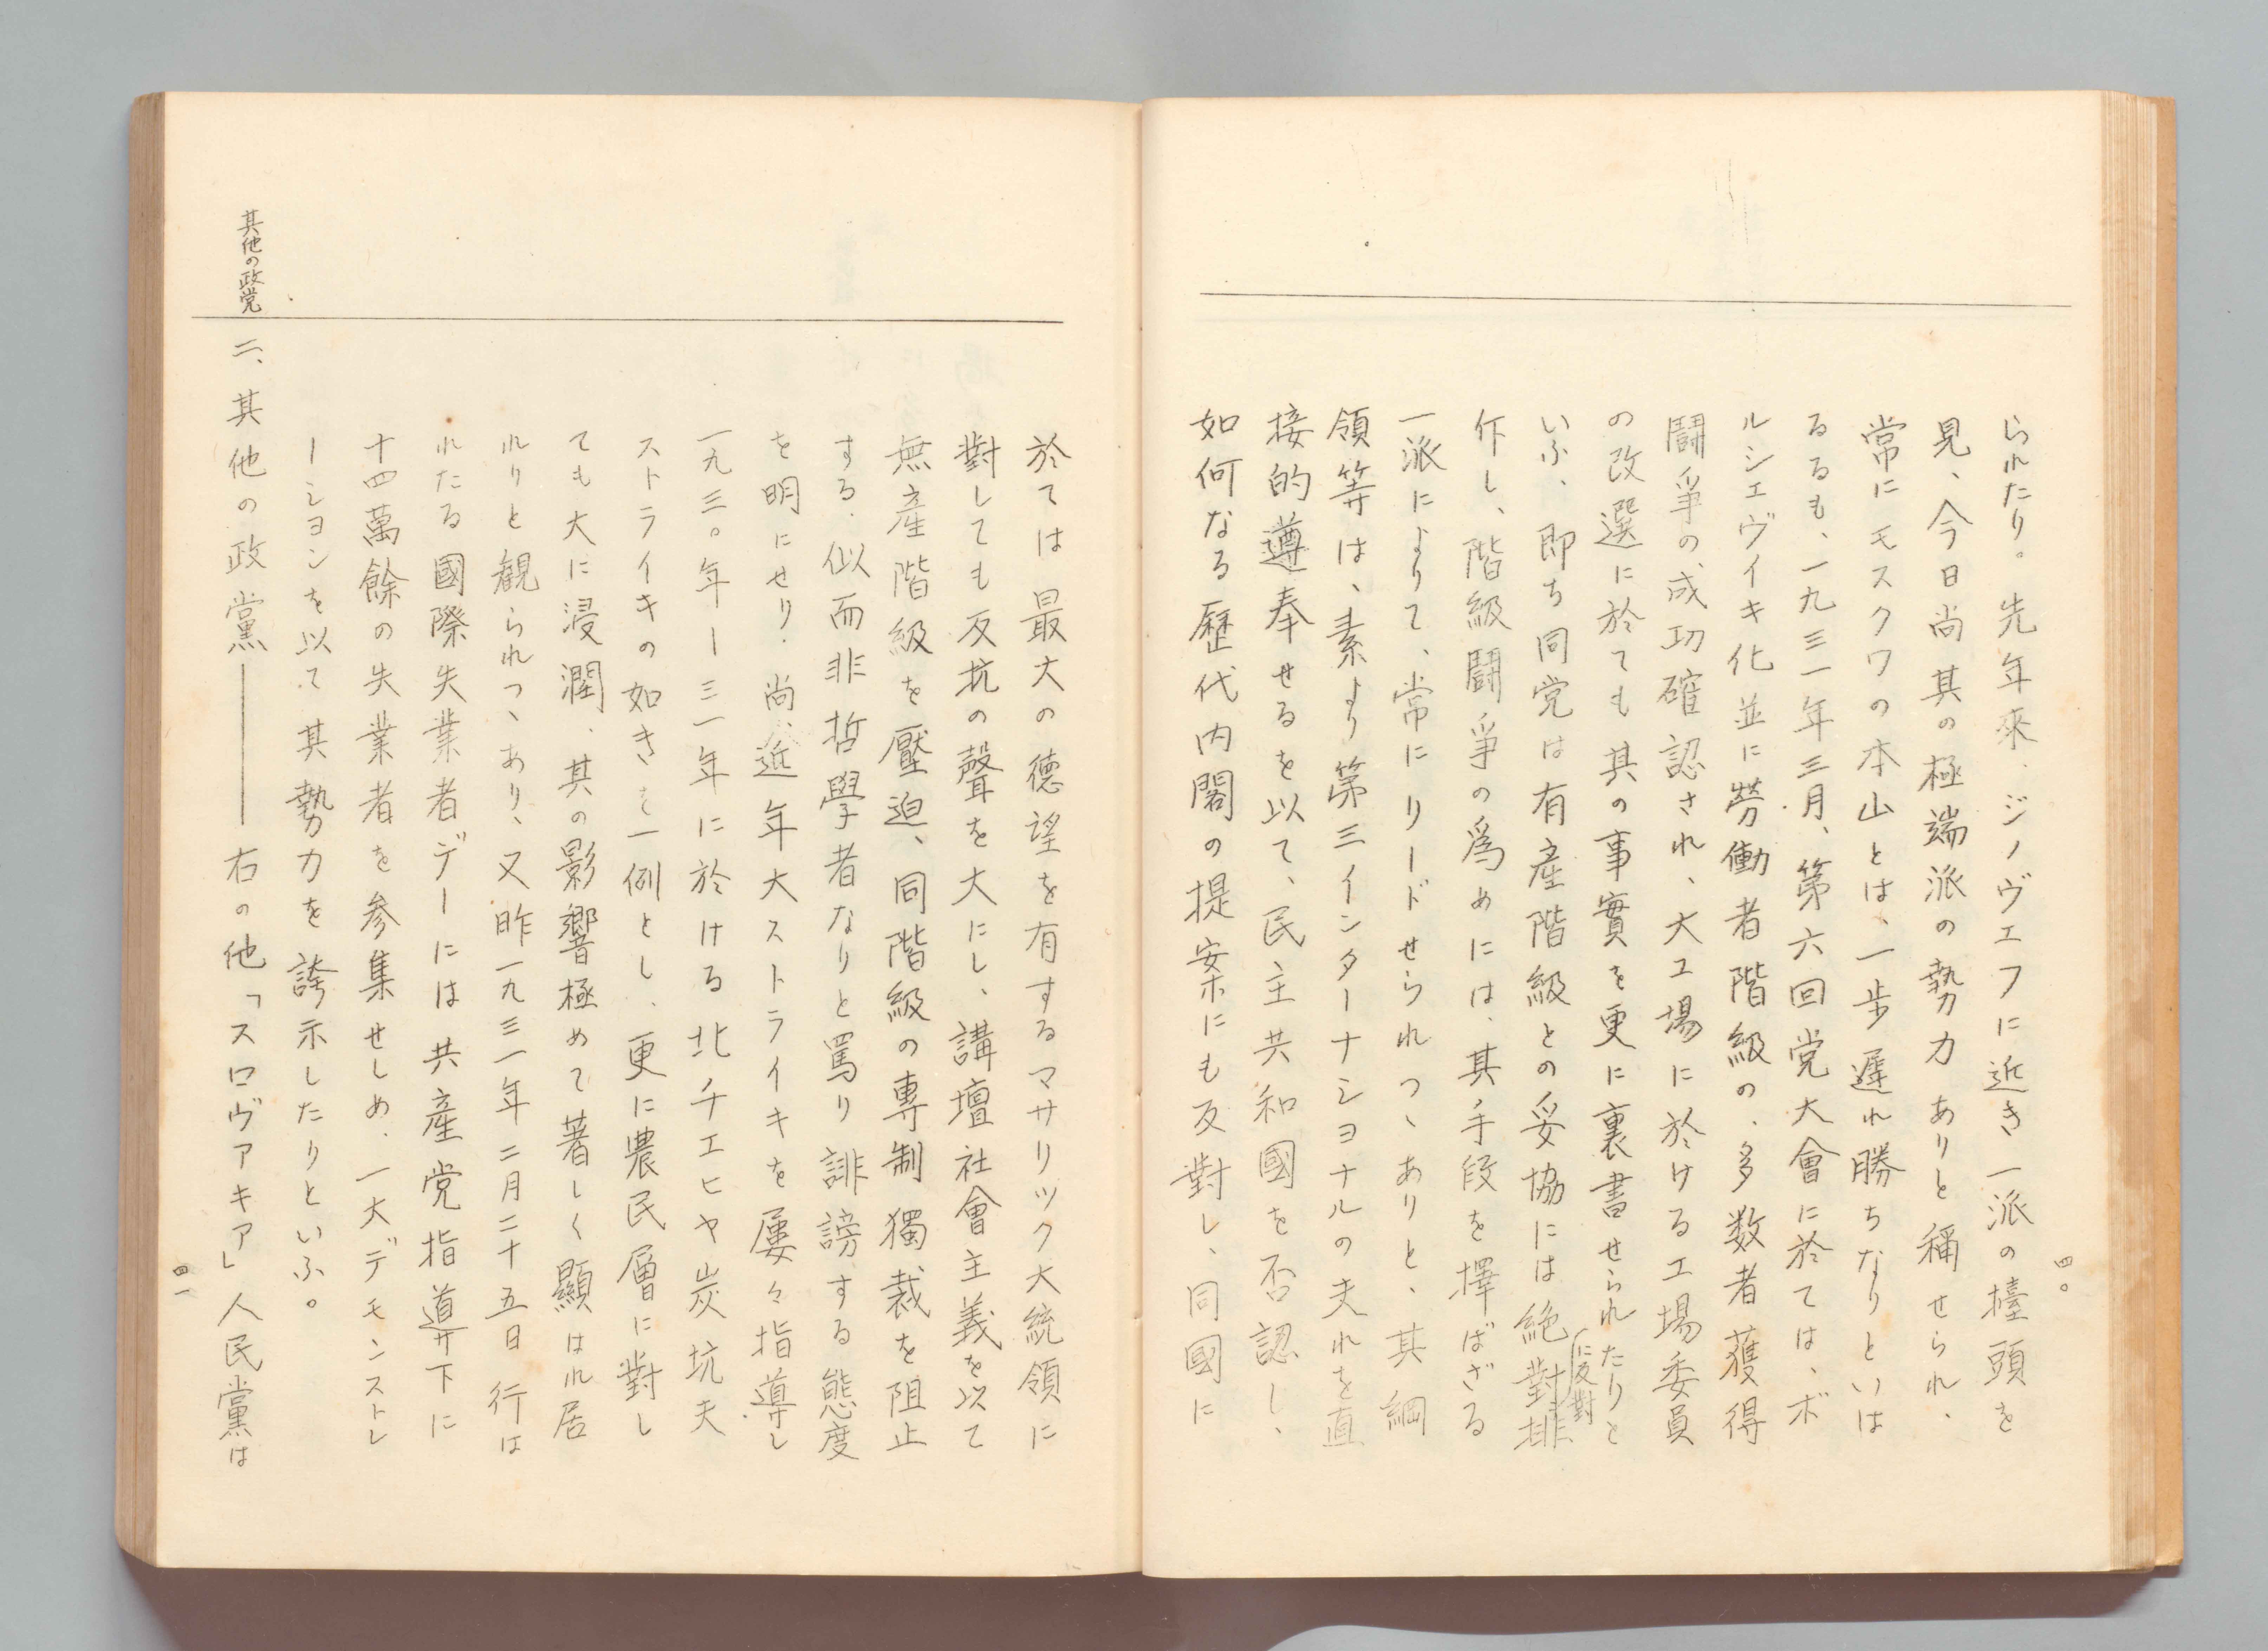 四〇
られたり。先年來、ジノヴェフに近き一派の擡頭を
見、今日尚其の極端派の勢力ありと稱せられ、
常にモスクワの本山とは、一歩遅れ勝ちなりといは
るるも、一九三一年三月、第六回党大會に於ては、ボ
ルシェヴイキ化並に勞働者階級の、多数者獲得
闘爭の成功確認され、大工場に於ける工場委員
の改選に於ても其の事實を更に裏書せられたりと
いふ、即ち同党は有産階級との妥協には絶對排
に反對
作し、階級闘爭の爲めには、其手段を擇ばざる
一派によりて、常にリードせられつゝありと、其綱
領等は、素より第三インターナショナルの夫れを直
接的遵奉せるを以て、民主共和國を否認し、
如何なる歴代内閣の提案にも反對し、同國に
於ては最大の徳望を有するマサリック大統領に
對しても反抗の聲を大にし、講壇社會主義を以て
無産階級を壓迫、同階級の專制獨裁を阻止
する、似而非哲學者なりと罵り誹謗する態度
を明にせり。尚、近年大ストライキを屢々指導し
一九三〇年ー三一年に於ける北チエヒヤ炭坑夫
ストライキの如きを一例とし、更に農民層に對し
ても大に浸潤、其の影響極めて著しく顯はれ居
れりと観られつゝあり、又昨一九三一年二月二十五日行は
れたる國際失業者デーには共産党指導下に
十四萬餘の失業者を参集せしめ、一大デモンストレ
ーションを以て其勢力を誇示したりといふ。
其他の政党
二、其他の政黨――――右の他「スロヴアキア」人民黨は
四一